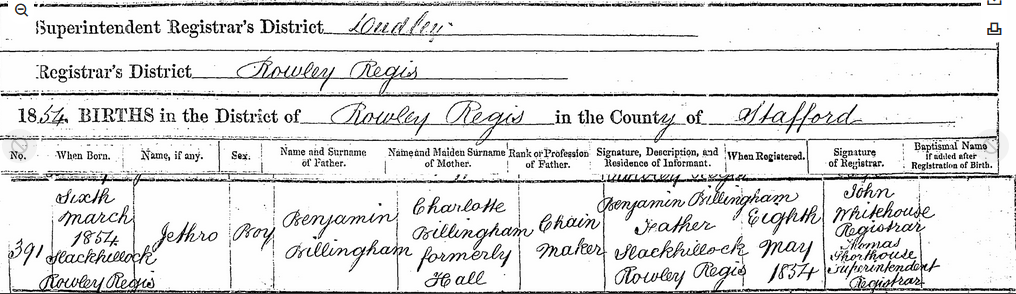 Superintendent Registrar's District Dudley
Registrar's District Rowley Regis
1854. BIRTHS in the District of Rowley Regis in the County of Stafford
No. When Born. Name, if any. Sex. Name and Surname of Father. Name and Maiden Surname of Mother. Rank or Profession of Father. Signature, Description, and Residence of Informant. When Registered. Signature of Registrar. Baptismal Name if added after Registration of Birth.
391
Sixth
March
1854
Slackhillock
Rowley Regis
Jethro
Boy
Benjamin
Billingham
Charlotte
Billingham
formerly
Hall
Chain
maker
Benjamin Billingham
Father
Slackhillock
Rowley Regis
Eighth
May
1854
John
Whitehouse
Registrar
Thomas
Shorthouse
Superintendent
Registrar